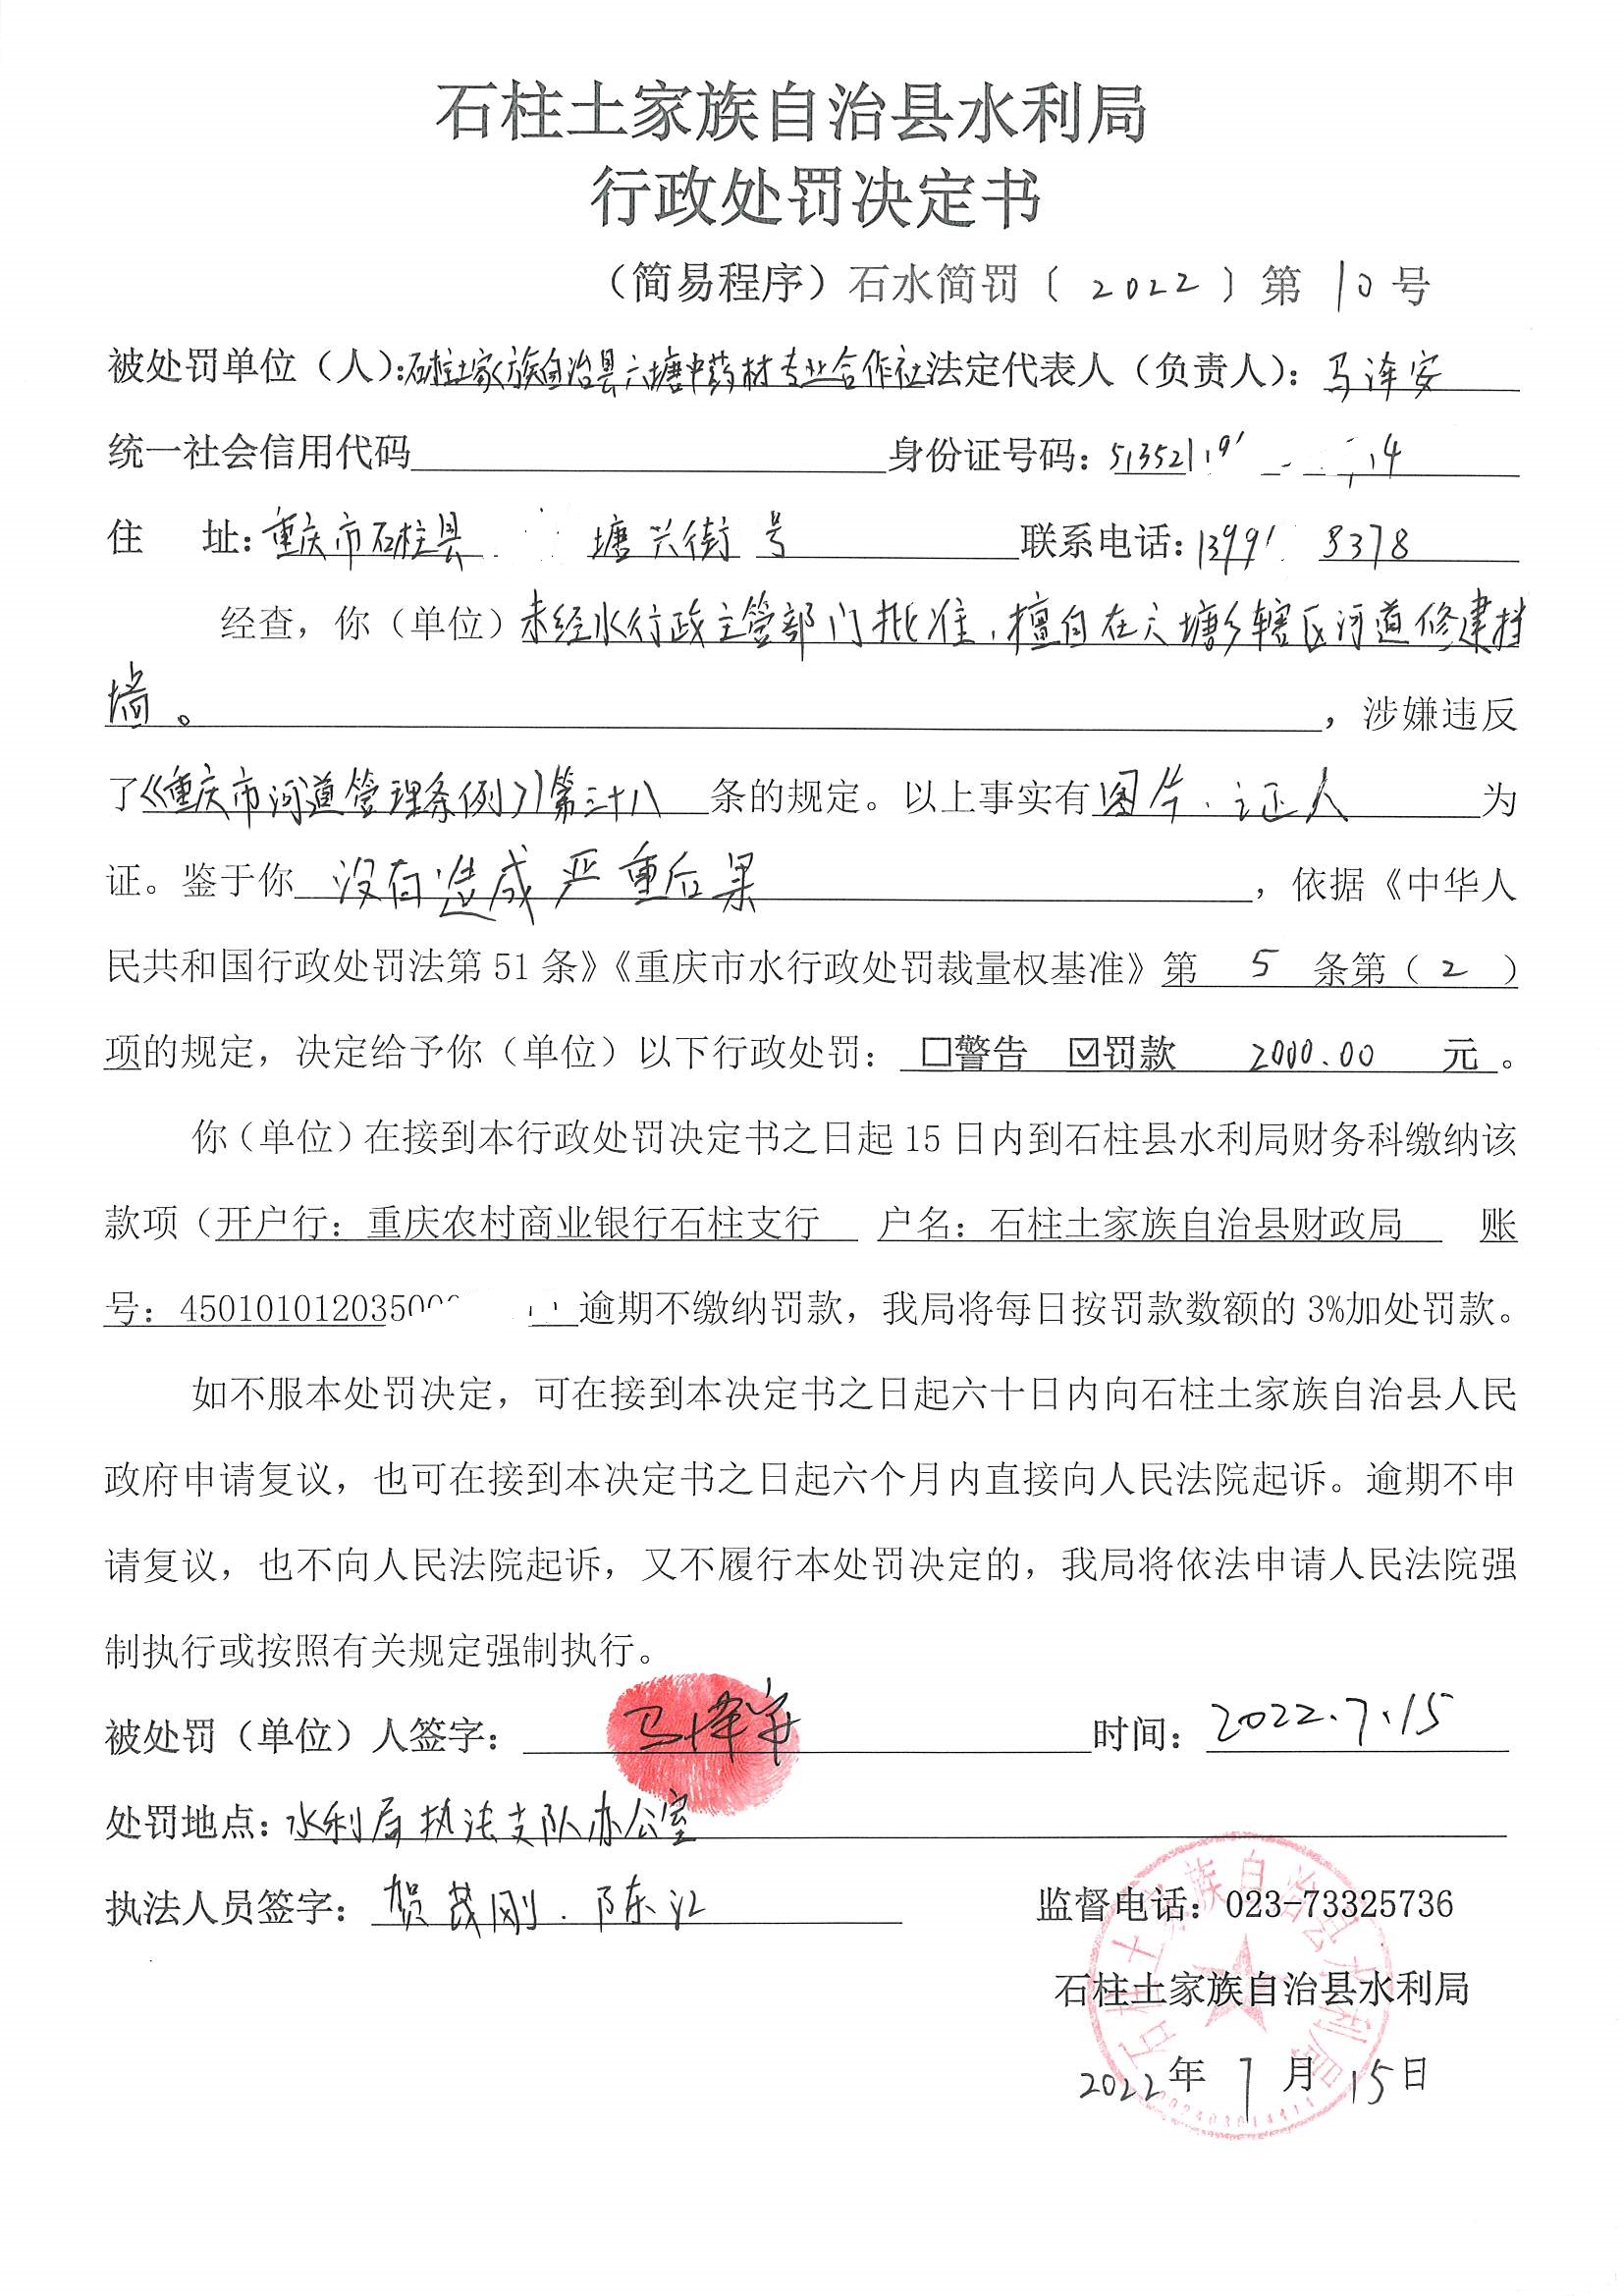 石柱土家族自治县水利局
行政处罚决定书
（简易程序）石水简罚〔2022〕第10号
被处罚单位（人）：石柱土家族自治县六塘中药材专业合作社法定代表人（负责人）：马泽安
统一社会信用代码 身份证号码：51352119 14
住 址：重庆市石柱县 塘兴街 号 联系电话：1399 8378
经查，你（单位）未经水行政主管部门批准，擅自在六塘乡辖区河道修建挡
墙。，涉嫌违反
了《重庆市河道管理条例》第三十八条的规定。以上事实有图片、证人为
证。鉴于你没有造成严重后果，依据《中华人
民共和国行政处罚法第51条》《重庆市水行政处罚裁量权基准》第5条第（2）
项的规定，决定给予你（单位）以下行政处罚：□警告 ☑罚款 2000.00 元。
你（单位）在接到本行政处罚决定书之日起15日内到石柱县水利局财务科缴纳该
款项（开户行：重庆农村商业银行石柱支行 户名：石柱土家族自治县财政局 账
号：450101012035000 逾期不缴纳罚款，我局将每日按罚款数额的3%加处罚款。
如不服本处罚决定，可在接到本决定书之日起六十日内向石柱土家族自治县人民
政府申请复议，也可在接到本决定书之日起六个月内直接向人民法院起诉。逾期不申
请复议，也不向人民法院起诉，又不履行本处罚决定的，我局将依法申请人民法院强
制执行或按照有关规定强制执行。
被处罚（单位）人签字：马泽安 时间：2022.7.15
处罚地点：水利局执法支队办公室
执法人员签字：贺茂刚、陈江 监督电话：023-73325736
石柱土家族自治县水利局
2022年7月15日
石柱土家族自治县水利局